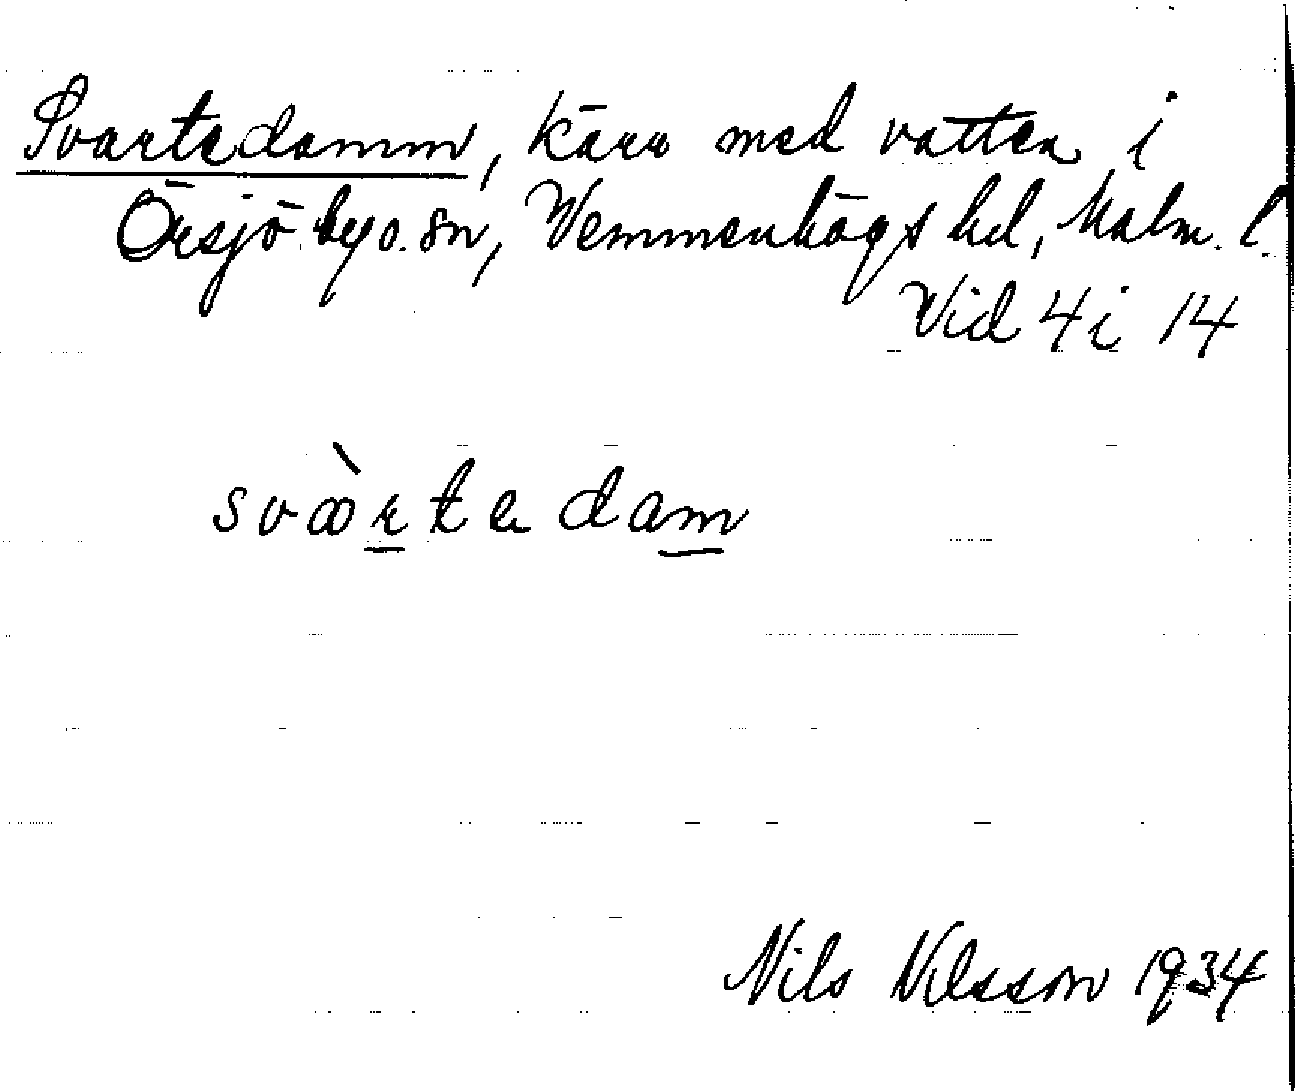 Svartedamm, kärr med vatten i
Örsjö by o. sn, Vemmenhögs hd, Malm. l.
Vid 4 i 14
svæ̀rtedam
Nils Nilsson 1934